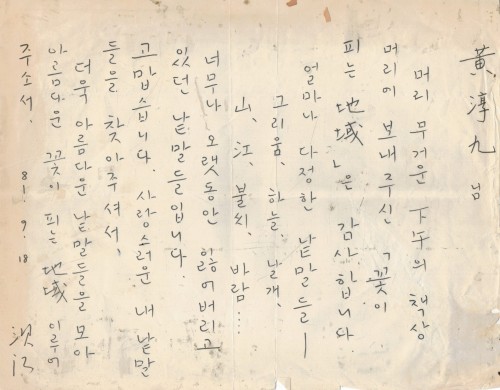 黃淳九 님
머리 무거운 下午의 책상
머리에 보내주신 「꽃이
피는 地域」은 감사합니다.
얼마나 다정한 낱말들―
그리움, 하늘, 날개,
山, 江, 불씨, 바람…
너무나 오랫동안 잃어버리고
있던 낱말들입니다.
고맙습니다. 사랑스러운 내 낱말
들을 찾아주셔서.
더욱 아름다운 낱말들을 모아
아름다운 꽃이 피는 地域 이루어
주소서. 81. 9. 18